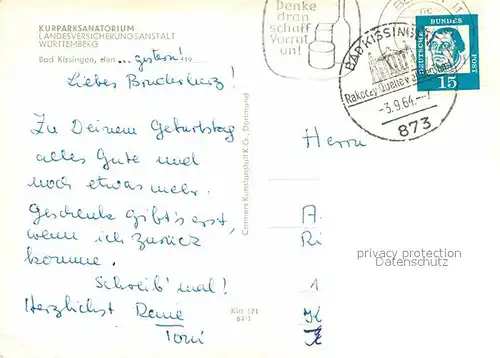 KURPARKSANATORIUM
LANDESVERSICHERUNGSANSTALT
WÜRTTEMBERG
Bad Kissingen, den ... gestern! 19
Liebes Bruderherz!
Zu Deinem Geburtstag
alles Gute und
noch etwas mehr.
Geschenke gibt's erst,
wenn ich zurück
komme.
Schreib' mal!
Herzlichst Deine
Toni
Cramers Kunstanstalt K.G., Dortmund
Denke
dran
schaff
Vorrat
an!
BAD KISSINGEN
Rakoczy Quelle
-3.9.64.-7
873
DEUTSCHE BUNDESPOST
15
Herrn
A.
Ri
1
privacy protection
Datenschutz
Kin 171
64-3